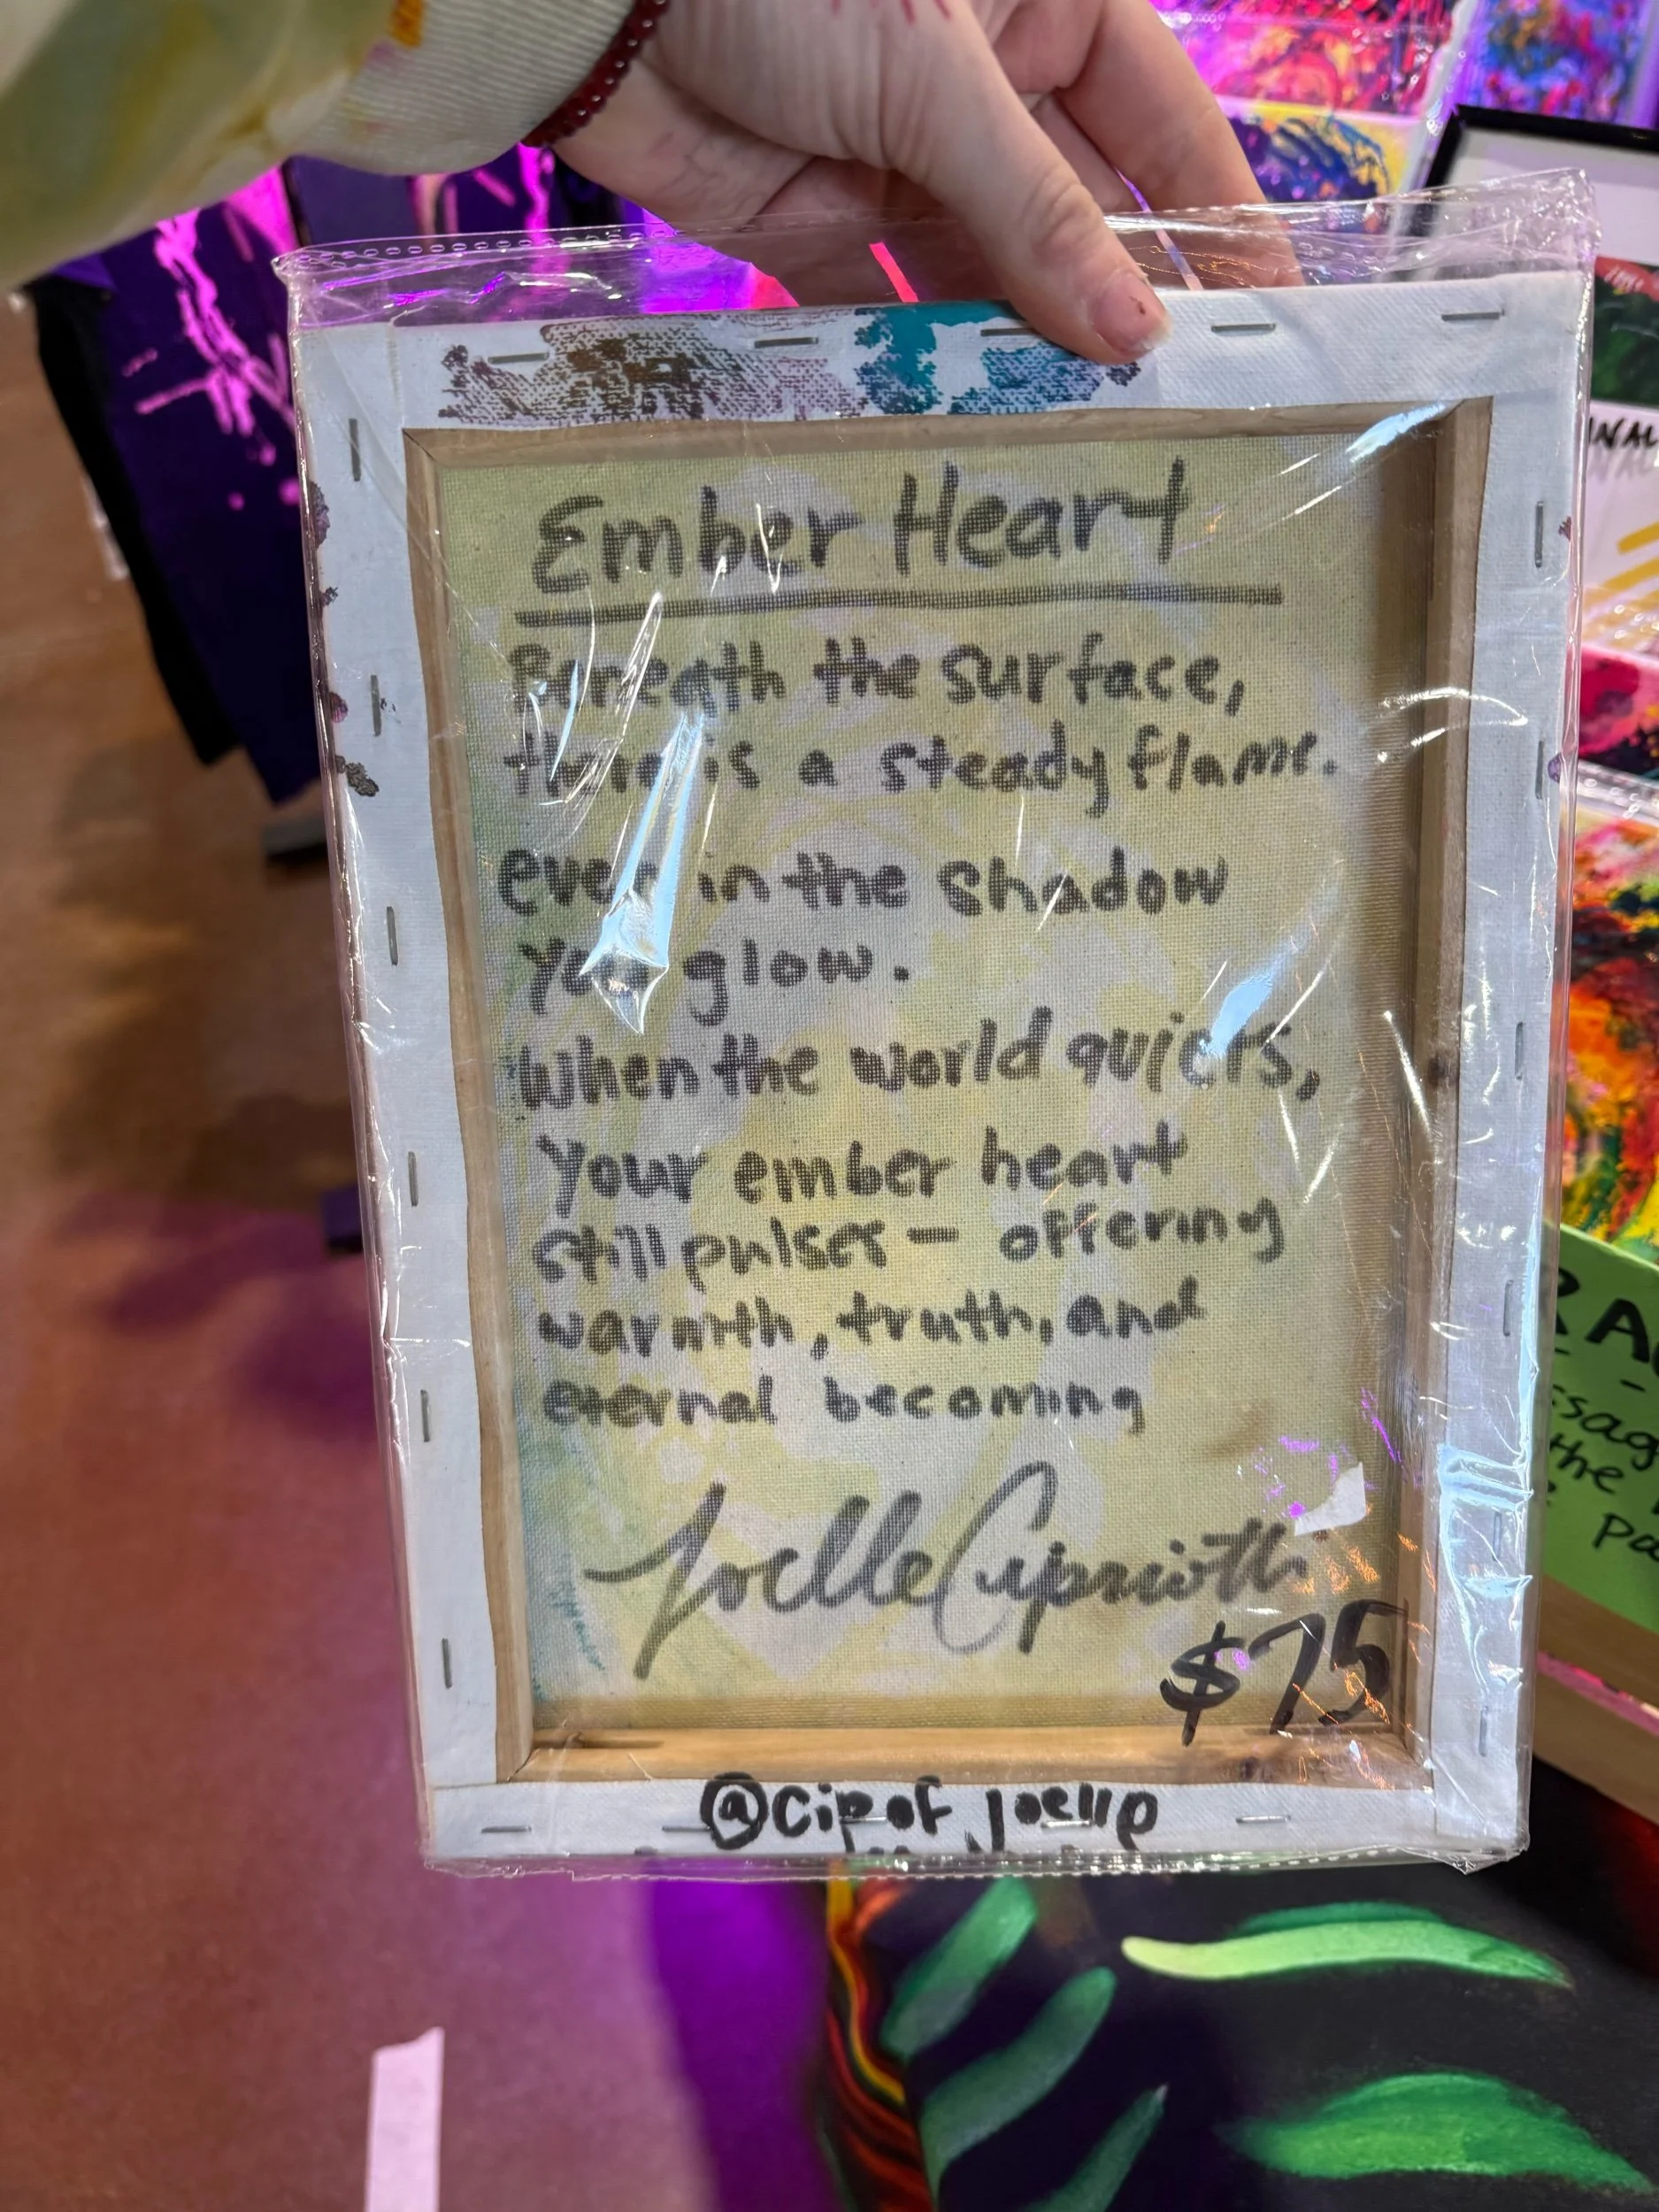 Ember Heart
Beneath the surface,
there is a steady flame.
even in the shadow
you glow.
When the world quiets,
your ember heart
still pulses — offering
warmth, truth, and
eternal becoming
Joelle Cipriotti
$75
@cipof joellp
INAL
RA
ssag
the
pa